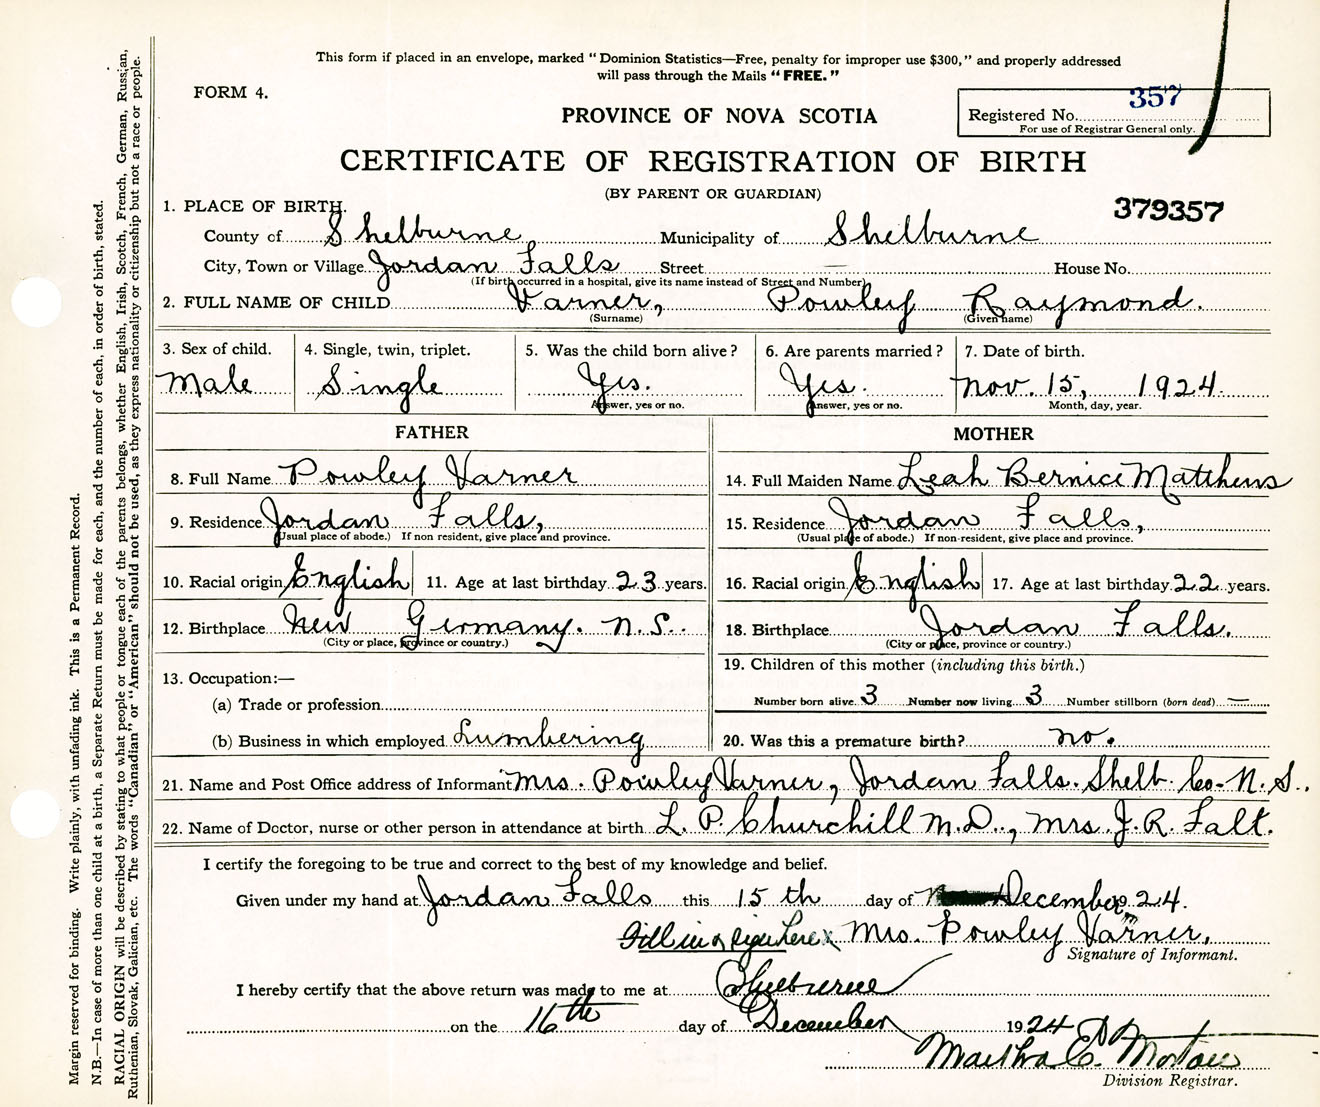 This form if placed in an envelope, marked “Dominion Statistics—Free, penalty for improper use $300,” and properly addressed
will pass through the Mails “FREE.”
FORM 4.
357
Registered No.
For use of Registrar General only.
PROVINCE OF NOVA SCOTIA
CERTIFICATE OF REGISTRATION OF BIRTH
(BY PARENT OR GUARDIAN)
379357
1. PLACE OF BIRTH.
County of Shelburne Municipality of Shelburne
City, Town or Village Jordan Falls Street — House No.
(If birth occurred in a hospital, give its name instead of Street and Number)
2. FULL NAME OF CHILD Varner, Powley Raymond.
(Surname) (Given name)
3. Sex of child. 4. Single, twin, triplet. 5. Was the child born alive? 6. Are parents married? 7. Date of birth.
Male Single Yes. Yes. Nov. 15, 1924.
Answer, yes or no. Answer, yes or no. Month, day, year.
FATHER MOTHER
8. Full Name Powley Varner 14. Full Maiden Name Leah Bernice Matthews
9. Residence Jordan Falls, 15. Residence Jordan Falls,
(Usual place of abode.) If non resident, give place and province. (Usual place of abode.) If non-resident, give place and province.
10. Racial origin English 11. Age at last birthday 23 years. 16. Racial origin English 17. Age at last birthday 22 years.
12. Birthplace New Germany. N.S. 18. Birthplace Jordan Falls.
(City or place, province or country.) (City or place, province or country.)
13. Occupation:— 19. Children of this mother (including this birth.)
(a) Trade or profession Number born alive 3 Number now living 3 Number stillborn (born dead) —
(b) Business in which employed Lumbering 20. Was this a premature birth? no.
21. Name and Post Office address of Informant Mrs. Powley Varner, Jordan Falls. Shelb. Co. N.S.,
22. Name of Doctor, nurse or other person in attendance at birth L. P. Churchill M.D., Mrs. J. R. Falt.
I certify the foregoing to be true and correct to the best of my knowledge and belief.
Given under my hand at Jordan Falls this 15th day of December 24.
Fill in & sign here x Mrs. Powley Varner,
Signature of Informant.
I hereby certify that the above return was made to me at Shelburne
on the 16th day of December 1924
Martha C.
Division Registrar.
Margin reserved for binding. Write plainly, with unfading ink. This is a Permanent Record.
N.B.—In case of more than one child at a birth, a Separate Return must be made for each, and the number of each, in order of birth, stated.
RACIAL ORIGIN will be described by stating to what people or tongue each of the parents belongs, whether English, Irish, Scotch, French, German, Russian,
Ruthenian, Slovak, Galician, etc. The words “Canadian” or “American” should not be used, as they express nationality or citizenship but not a race or people.